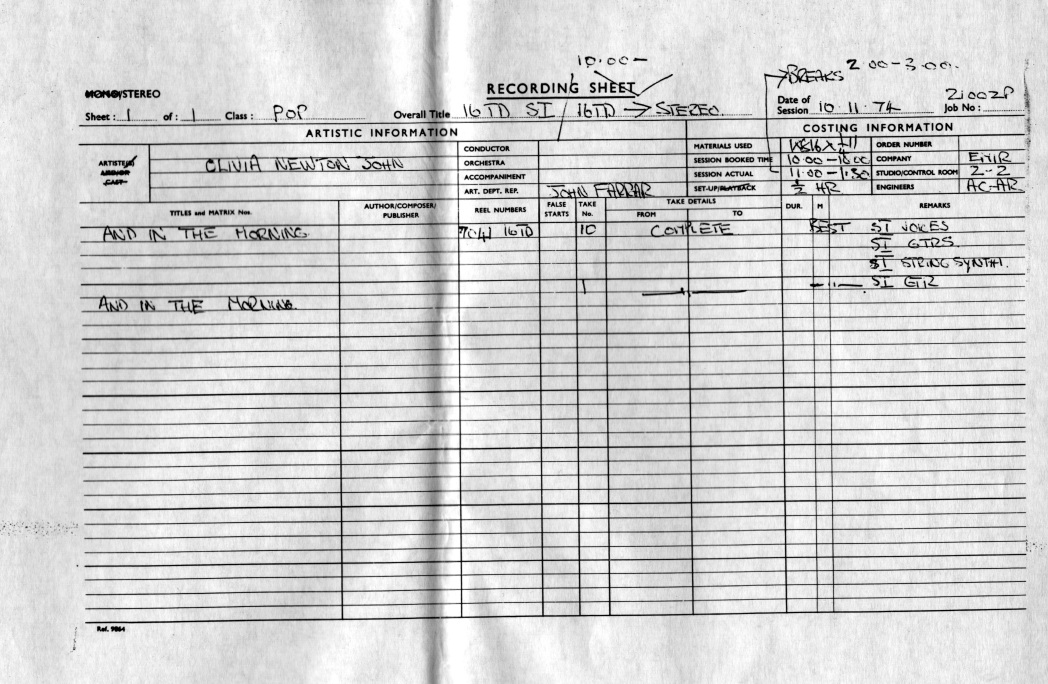 10.00 -
BREAKS 2.00 - 3.00.
MONO/STEREO
RECORDING SHEET
21002P
Sheet: 1 of: 1 Class: POP Overall Title 16TD SI 16TD → STEREO. Date of Session 10.11.74 Job No:
ARTISTIC INFORMATION COSTING INFORMATION
ARTISTE(S) AND/OR CAST OLIVIA NEWTON JOHN
CONDUCTOR MATERIALS USED ORDER NUMBER
ORCHESTRA SESSION BOOKED TIME 10.00 - COMPANY EMIR
ACCOMPANIMENT SESSION ACTUAL 11.00 - 1.30 STUDIO/CONTROL ROOM 2-2
ART. DEPT. REP. JOHN FARRAR SET-UP/PLAYBACK ½ HR ENGINEERS AC-AR
TITLES and MATRIX Nos. AUTHOR/COMPOSER/PUBLISHER REEL NUMBERS FALSE STARTS TAKE No. TAKE DETAILS FROM TO DUR. M REMARKS
AND IN THE MORNING. 16TD 10 COMPLETE BEST SI VOICES
SI GTRS.
SI STRING SYNTH.
1 —"— —"— SI GTR
AND IN THE MORNING.
Ref. 9064